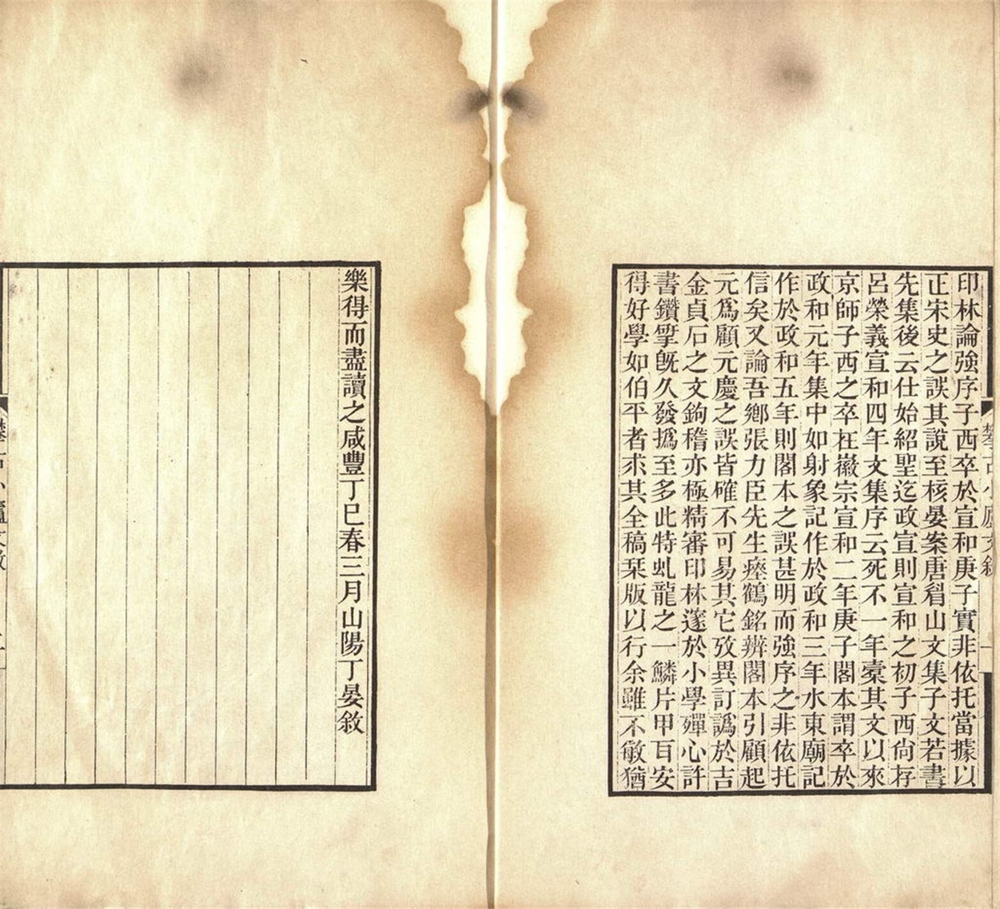 印林論強序子西卒於宣和庚子實非依托當據以
正宋史之誤其說至核晏案唐睂山文集子文若書
先集後云仕始紹聖迄政宣則宣和之初子西尙存
呂榮義宣和四年文集序云死不一年稾其文以來
京師子西之卒在徽宗宣和二年庚子閣本謂卒於
政和元年集中如射象記作於政和三年水東廟記
作於政和五年則閣本之誤甚明而強序之非依托
信矣又論吾鄉張力臣先生瘞鶴銘辨閣本引顧起
元爲顧元慶之誤皆確不可易其它攷異訂譌於吉
金貞石之文鉤稽亦極精審印林邃於小學殫心許
書鑽揅旣久發撝至多此特虬龍之一鱗片甲耳安
得好學如伯平者求其全稿栞版以行余雖不敏猶
樂得而盡讀之咸豐丁巳春三月山陽丁晏敘